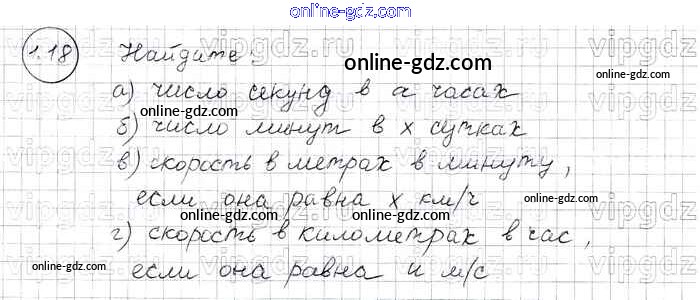 online-gdz.com
1.18 Найдите:
online-gdz.com
а) число секунд в а часах
online-gdz.com
б) число минут в х сутках
online-gdz.com
в) скорость в метрах в минуту,
online-gdz.com
если она равна х км/ч
online-gdz.com
online-gdz.com
г) скорость в километрах в час,
online-gdz.com
если она равна и м/с
online-gdz.com
vipgdz.ru